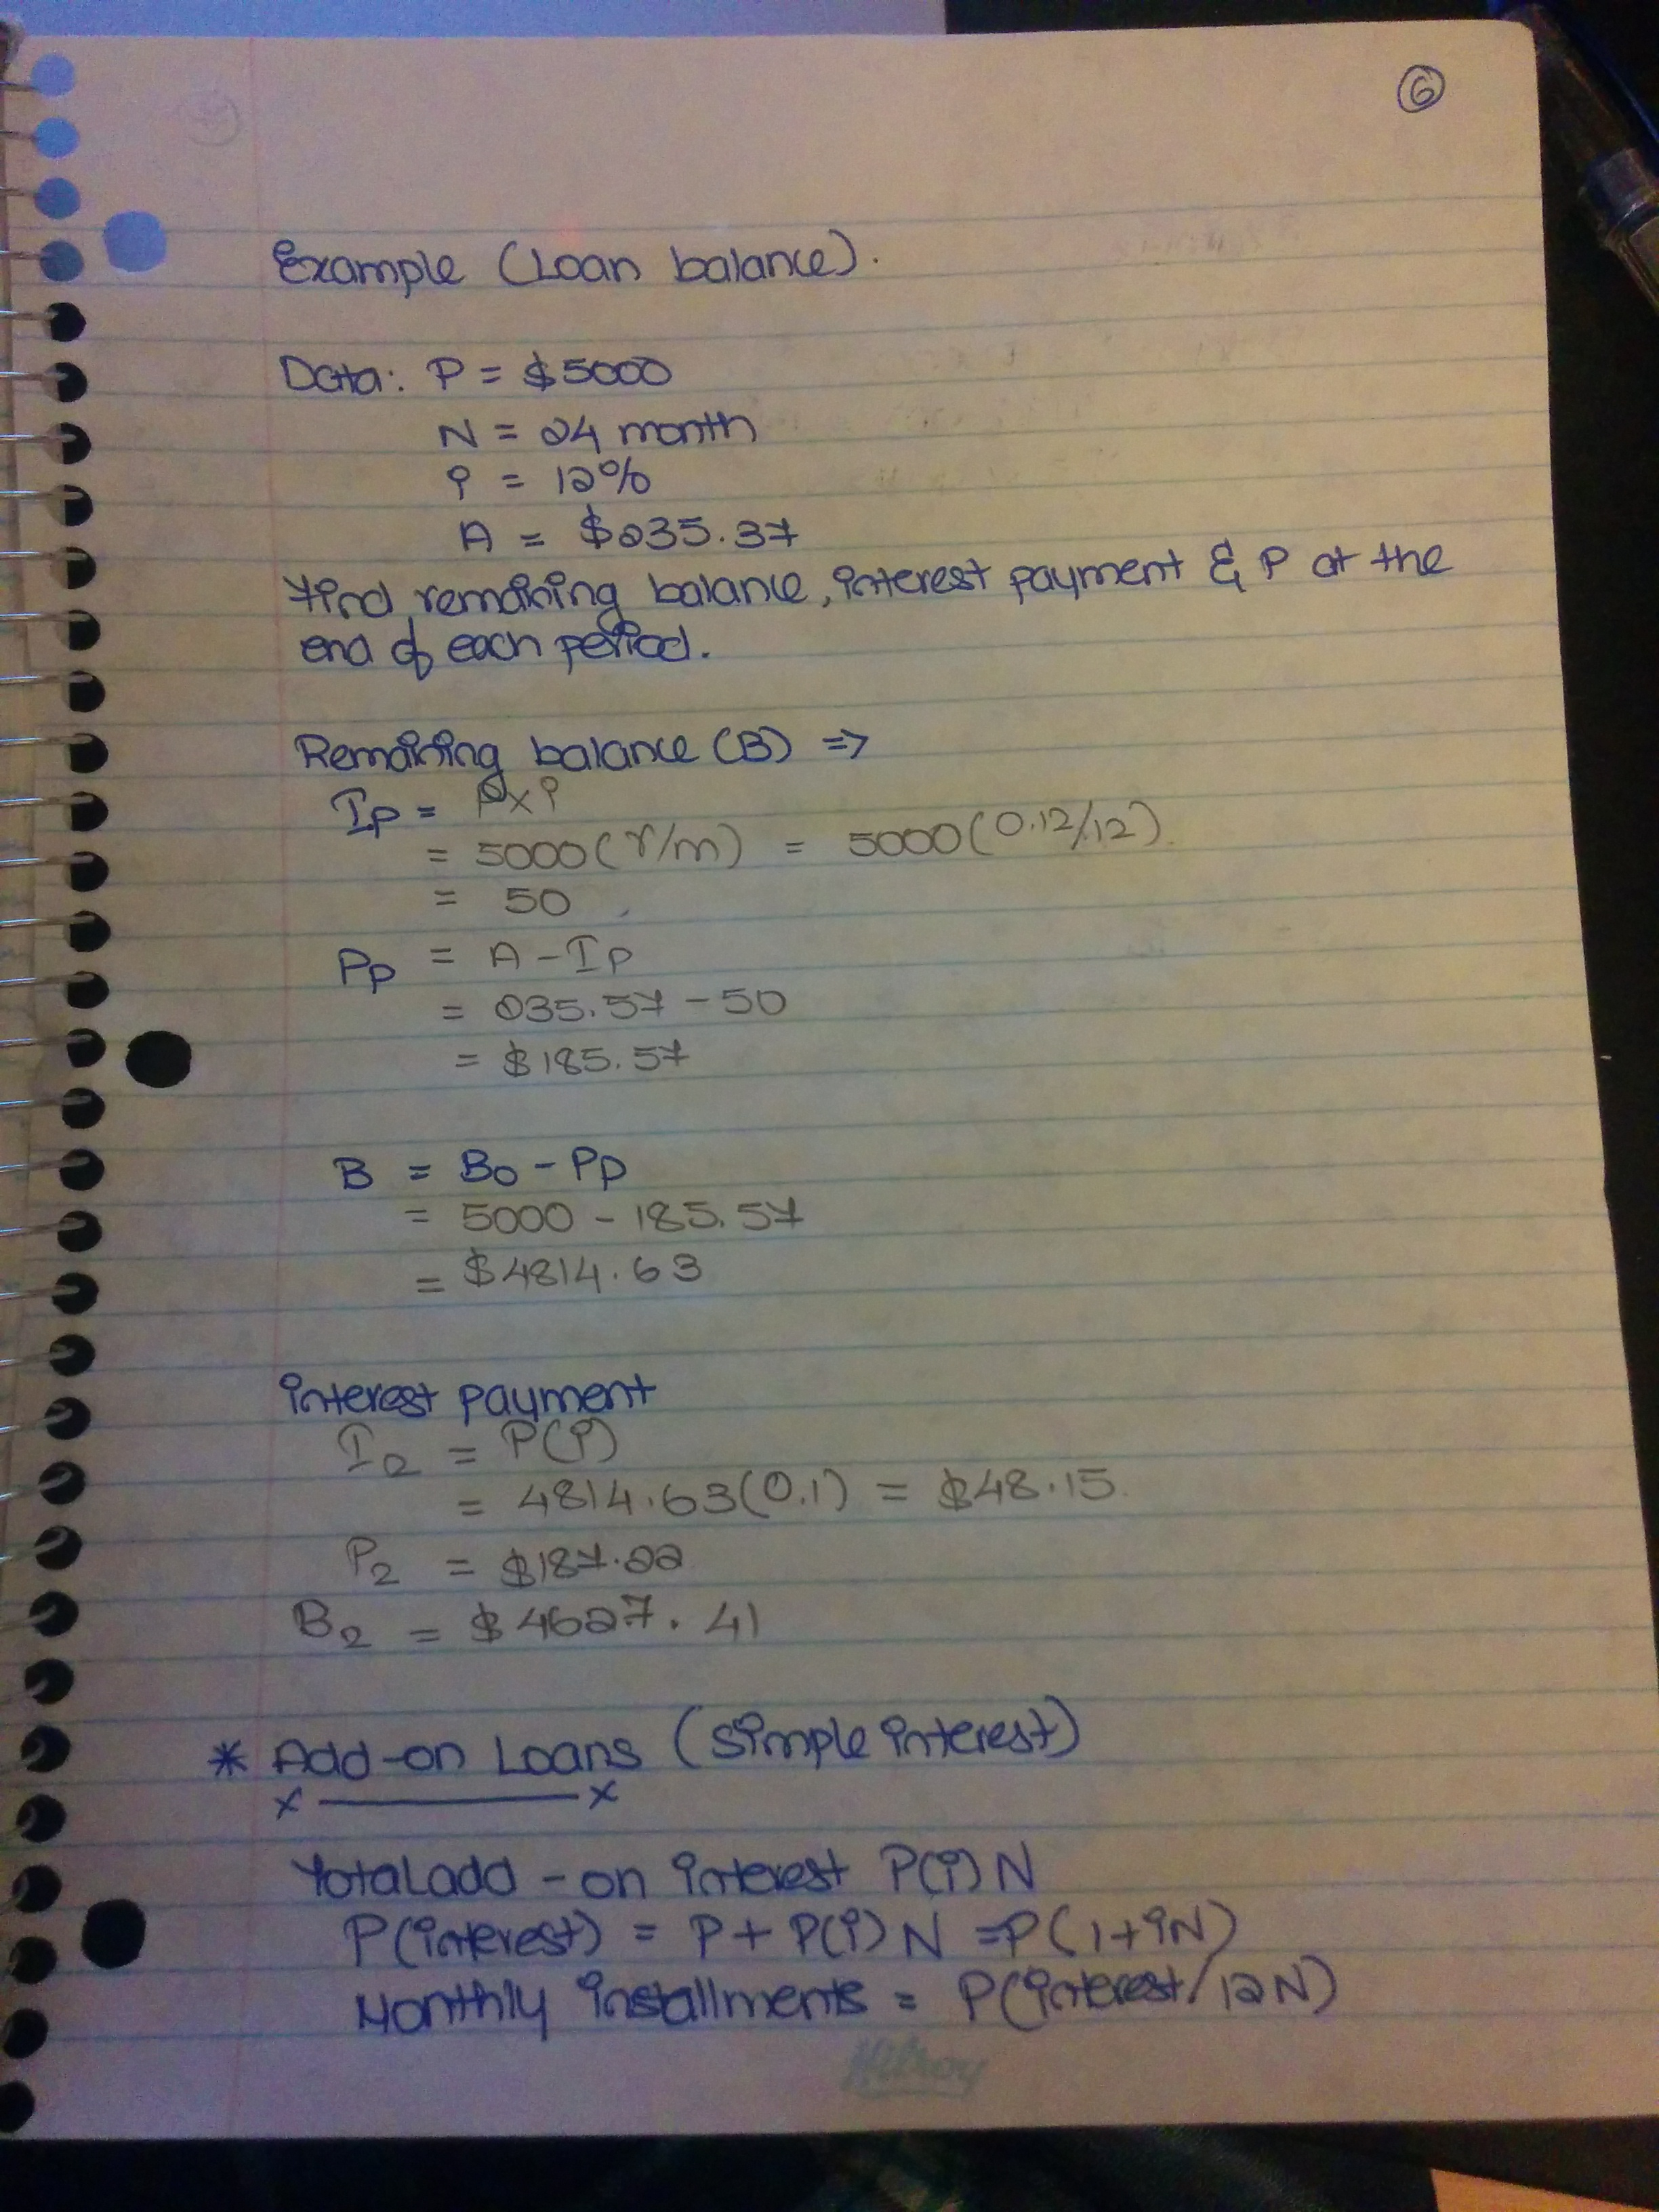 6
Example (Loan balance).
Data: P = $5000
N = 24 month
i = 12%
A = $235.37
Find remaining balance, interest payment & P at the
end of each period.
Remaining balance (B) =>
Ip = P x i
= 5000 (r/m) = 5000 (0.12/12).
= 50
Pp = A - Ip
= 235.57 - 50
= $185.57
B = Bo - Pp
= 5000 - 185.57
= $4814.63
interest payment
I2 = P(i)
= 4814.63 (0.1) = $48.15.
P2 = $187.22
B2 = $4627.41
* Add-on Loans (simple interest)
x ———— x
Total add - on interest P(i) N
P(interest) = P + P(i) N = P(1+iN)
Monthly installments = P(interest/12N)
Hilroy